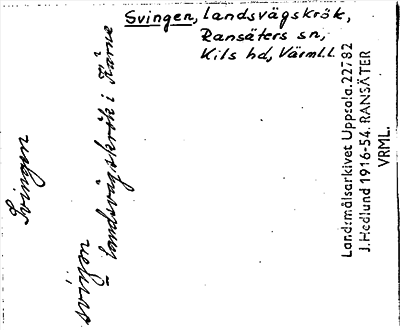 Svingen, landsvägskrök,
Ransäters sn,
Kils hd, Värml.l.
Svingen
sviŋən
= landsvägskrök i Kärne
Landsmålsarkivet Uppsala. 22782
J. Hedlund 1916-54. RANSÄTER
VRML.